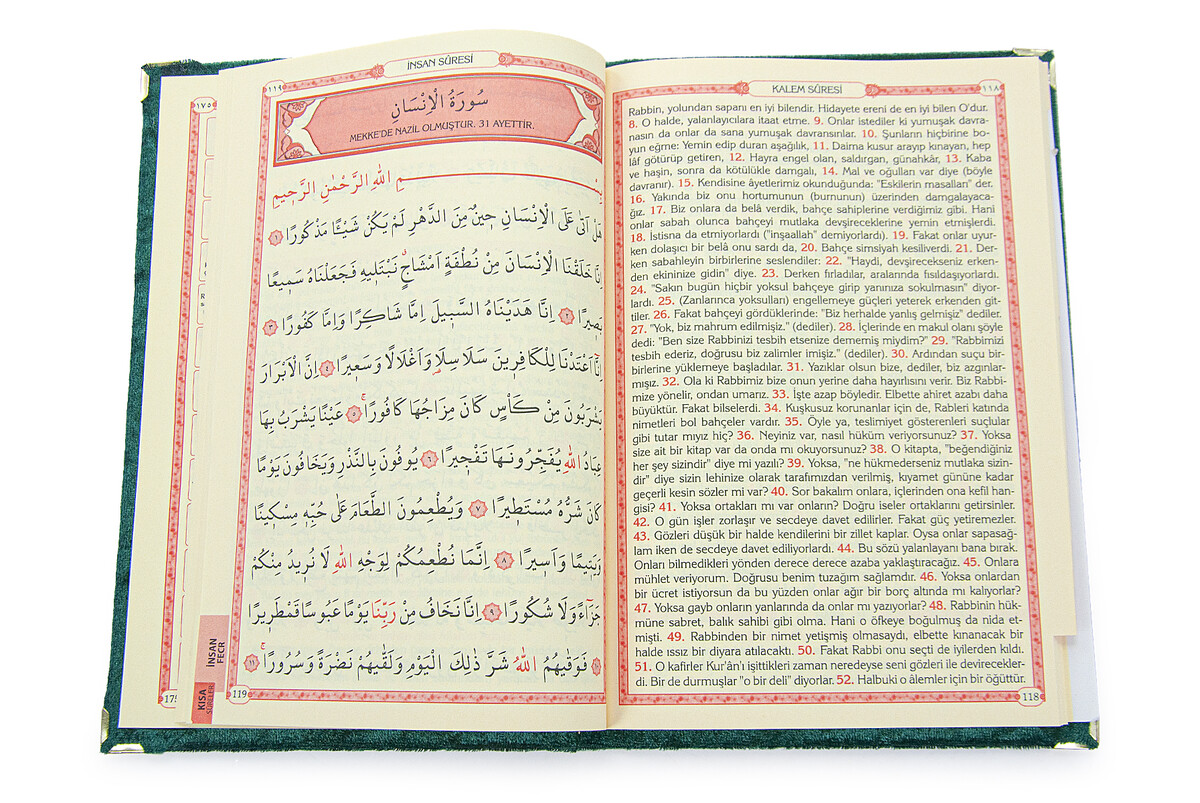 KALEM SÛRESİ
١١٨
Rabbin, yolundan sapanı en iyi bilendir. Hidayete ereni de en iyi bilen O'dur.
8. O halde, yalanlayıcılara itaat etme. 9. Onlar istediler ki yumuşak davra-
nasın da onlar da sana yumuşak davransınlar. 10. Şunların hiçbirine bo-
yun eğme: Yemin edip duran aşağılık, 11. Daima kusur arayıp kınayan, hep
lâf götürüp getiren, 12. Hayra engel olan, saldırgan, günahkâr, 13. Kaba
ve haşin, sonra da kötülükle damgalı, 14. Mal ve oğulları var diye (böyle
davranır). 15. Kendisine âyetlerimiz okunduğunda: "Eskilerin masalları" der.
16. Yakında biz onu hortumunun (burnunun) üzerinden damgalayaca-
ğız. 17. Biz onlara da belâ verdik, bahçe sahiplerine verdiğimiz gibi. Hani
onlar sabah olunca bahçeyi mutlaka devşireceklerine yemin etmişlerdi.
18. İstisna da etmiyorlardı ("inşaallah" demiyorlardı). 19. Fakat onlar uyur-
ken dolaşıcı bir belâ onu sardı da, 20. Bahçe simsiyah kesiliverdi. 21. Der-
ken sabahleyin birbirlerine seslendiler: 22. "Haydi, devşirecekseniz erken-
den ekininize gidin" diye. 23. Derken fırladılar, aralarında fısıldaşıyorlardı.
24. "Sakın bugün hiçbir yoksul bahçeye girip yanınıza sokulmasın" diyor-
lardı. 25. (Zanlarınca yoksulları) engellemeye güçleri yeterek erkenden git-
tiler. 26. Fakat bahçeyi gördüklerinde: "Biz herhalde yanlış gelmişiz" dediler.
27. "Yok, biz mahrum edilmişiz." (dediler). 28. İçlerinde en makul olanı şöyle
dedi: "Ben size Rabbinizi tesbih etsenize dememiş miydim?" 29. "Rabbimizi
tesbih ederiz, doğrusu biz zalimler imişiz." (dediler). 30. Ardından suçu bir-
birlerine yüklemeye başladılar. 31. Yazıklar olsun bize, dediler, biz azgınlar-
mışız. 32. Ola ki Rabbimiz bize onun yerine daha hayırlısını verir. Biz Rabbi-
mize yönelir, ondan umarız. 33. İşte azap böyledir. Elbette ahiret azabı daha
büyüktür. Fakat bilselerdi. 34. Kuşkusuz korunanlar için de, Rableri katında
nimetleri bol bahçeler vardır. 35. Öyle ya, teslimiyet gösterenleri suçlular
gibi tutar mıyız hiç? 36. Neyiniz var, nasıl hüküm veriyorsunuz? 37. Yoksa
size ait bir kitap var da onda mı okuyorsunuz? 38. O kitapta, "beğendiğiniz
her şey sizindir" diye mi yazılı? 39. Yoksa, "ne hükmederseniz mutlaka sizin-
dir" diye sizin lehinize olarak tarafımızdan verilmiş, kıyamet gününe kadar
geçerli kesin sözler mi var? 40. Sor bakalım onlara, içlerinden ona kefil han-
gisi? 41. Yoksa ortakları mı var onların? Doğru iseler ortaklarını getirsinler.
42. O gün işler zorlaşır ve secdeye davet edilirler. Fakat güç yetiremezler.
43. Gözleri düşük bir halde kendilerini bir zillet kaplar. Oysa onlar sapasağ-
lam iken de secdeye davet ediliyorlardı. 44. Bu sözü yalanlayanı bana bırak.
Onları bilmedikleri yönden derece derece azaba yaklaştıracağız. 45. Onlara
mühlet veriyorum. Doğrusu benim tuzağım sağlamdır. 46. Yoksa onlardan
bir ücret istiyorsun da bu yüzden onlar ağır bir borç altında mı kalıyorlar?
47. Yoksa gayb onların yanlarında da onlar mı yazıyorlar? 48. Rabbinin hük-
müne sabret, balık sahibi gibi olma. Hani o öfkeye boğulmuş da nida et-
mişti. 49. Rabbinden bir nimet yetişmiş olmasaydı, elbette kınanacak bir
halde ıssız bir diyara atılacaktı. 50. Fakat Rabbi onu seçti de iyilerden kıldı.
51. O kafirler Kur'ân'ı işittikleri zaman neredeyse seni gözleri ile devirecekler-
di. Bir de durmuşlar "o bir deli" diyorlar. 52. Halbuki o âlemler için bir öğüttür.
118
İNSAN SÛRESİ
١١٩
سُورَةُ الْاِنْسَانِ
MEKKE'DE NAZİL OLMUŞTUR. 31 AYETTİR.
بِسْمِ اللّٰهِ الرَّحْمٰنِ الرَّحٖيمِ
هَلْ اَتٰى عَلَى الْاِنْسَانِ حٖينٌ مِنَ الدَّهْرِ لَمْ يَكُنْ شَيْـًٔا مَذْكُورًا ١
اِنَّا خَلَقْنَا الْاِنْسَانَ مِنْ نُطْفَةٍ اَمْشَاجٍ نَبْتَلٖيهِ فَجَعَلْنَاهُ سَمٖيعًا
بَصٖيرًا ٢ اِنَّا هَدَيْنَاهُ السَّبٖيلَ اِمَّا شَاكِرًا وَاِمَّا كَفُورًا ٣
اِنَّٓا اَعْتَدْنَا لِلْكَافِرٖينَ سَلَاسِلَا وَاَغْلَالًا وَسَعٖيرًا ٤ اِنَّ الْاَبْرَارَ
يَشْرَبُونَ مِنْ كَاْسٍ كَانَ مِزَاجُهَا كَافُورًا ٥ عَيْنًا يَشْرَبُ بِهَا
عِبَادُ اللّٰهِ يُفَجِّرُونَهَا تَفْجٖيرًا ٦ يُوفُونَ بِالنَّذْرِ وَيَخَافُونَ يَوْمًا
كَانَ شَرُّهُ مُسْتَطٖيرًا ٧ وَيُطْعِمُونَ الطَّعَامَ عَلٰى حُبِّهٖ مِسْكٖينًا
وَيَتٖيمًا وَاَسٖيرًا ٨ اِنَّمَا نُطْعِمُكُمْ لِوَجْهِ اللّٰهِ لَا نُرٖيدُ مِنْكُمْ
جَزَٓاءً وَلَا شُكُورًا ٩ اِنَّا نَخَافُ مِنْ رَبِّنَا يَوْمًا عَبُوسًا قَمْطَرٖيرًا
١٠ فَوَقٰيهُمُ اللّٰهُ شَرَّ ذٰلِكَ الْيَوْمِ وَلَقّٰيهُمْ نَضْرَةً وَسُرُورًا ١١
119
İNSAN
FECR
KISA
SURELER
١٧٥
175